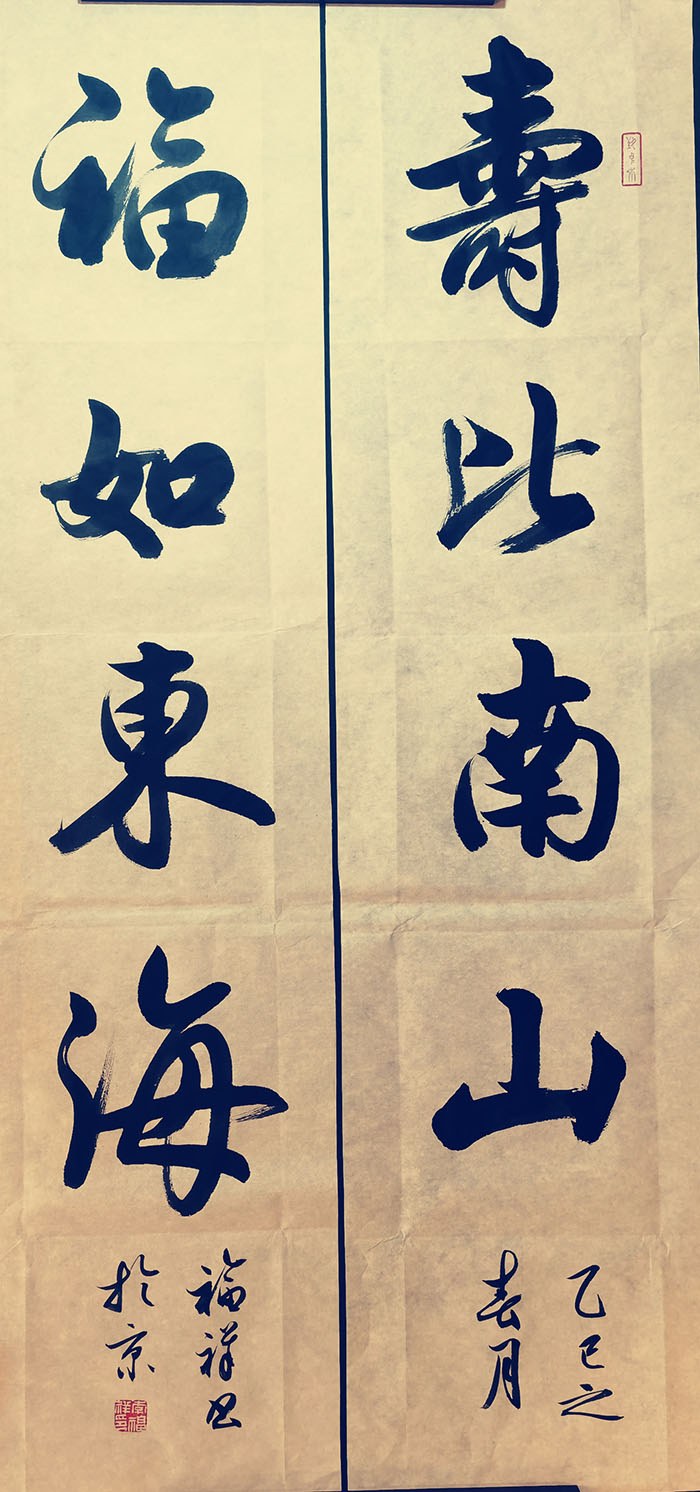 壽比南山
乙巳之
春月
福如東海
福祥书
於京